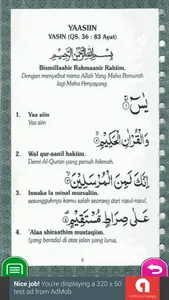 YAASIIN
YASIN (QS. 36 : 83 Ayat)
بِسْمِ اللَّهِ الرَّحْمَٰنِ الرَّحِيمِ
Bismillaahir Rahmaanir Rahiim.
Dengan menyebut nama Allah Yang Maha Pemurah
lagi Maha Penyayang.
يٰسۤ
1. Yaa siin
Yaa siin
وَالْقُرْاٰنِ الْحَكِيْمِ
2. Wal qur-aanil hakiim.
Demi Al-Quran yang penuh hikmah.
اِنَّكَ لَمِنَ الْمُرْسَلِيْنَ
3. Innaka la minal mursaliin.
sesungguhnya kamu salah seorang dari rasul-rasul,
عَلٰى صِرَاطٍ مُّسْتَقِيْمٍ
4. 'Alaa shiraathim mustaqiim.
(yang berada) di atas jalan yang lurus,
Nice job! You're displaying a 320 x 50
test ad from AdMob.